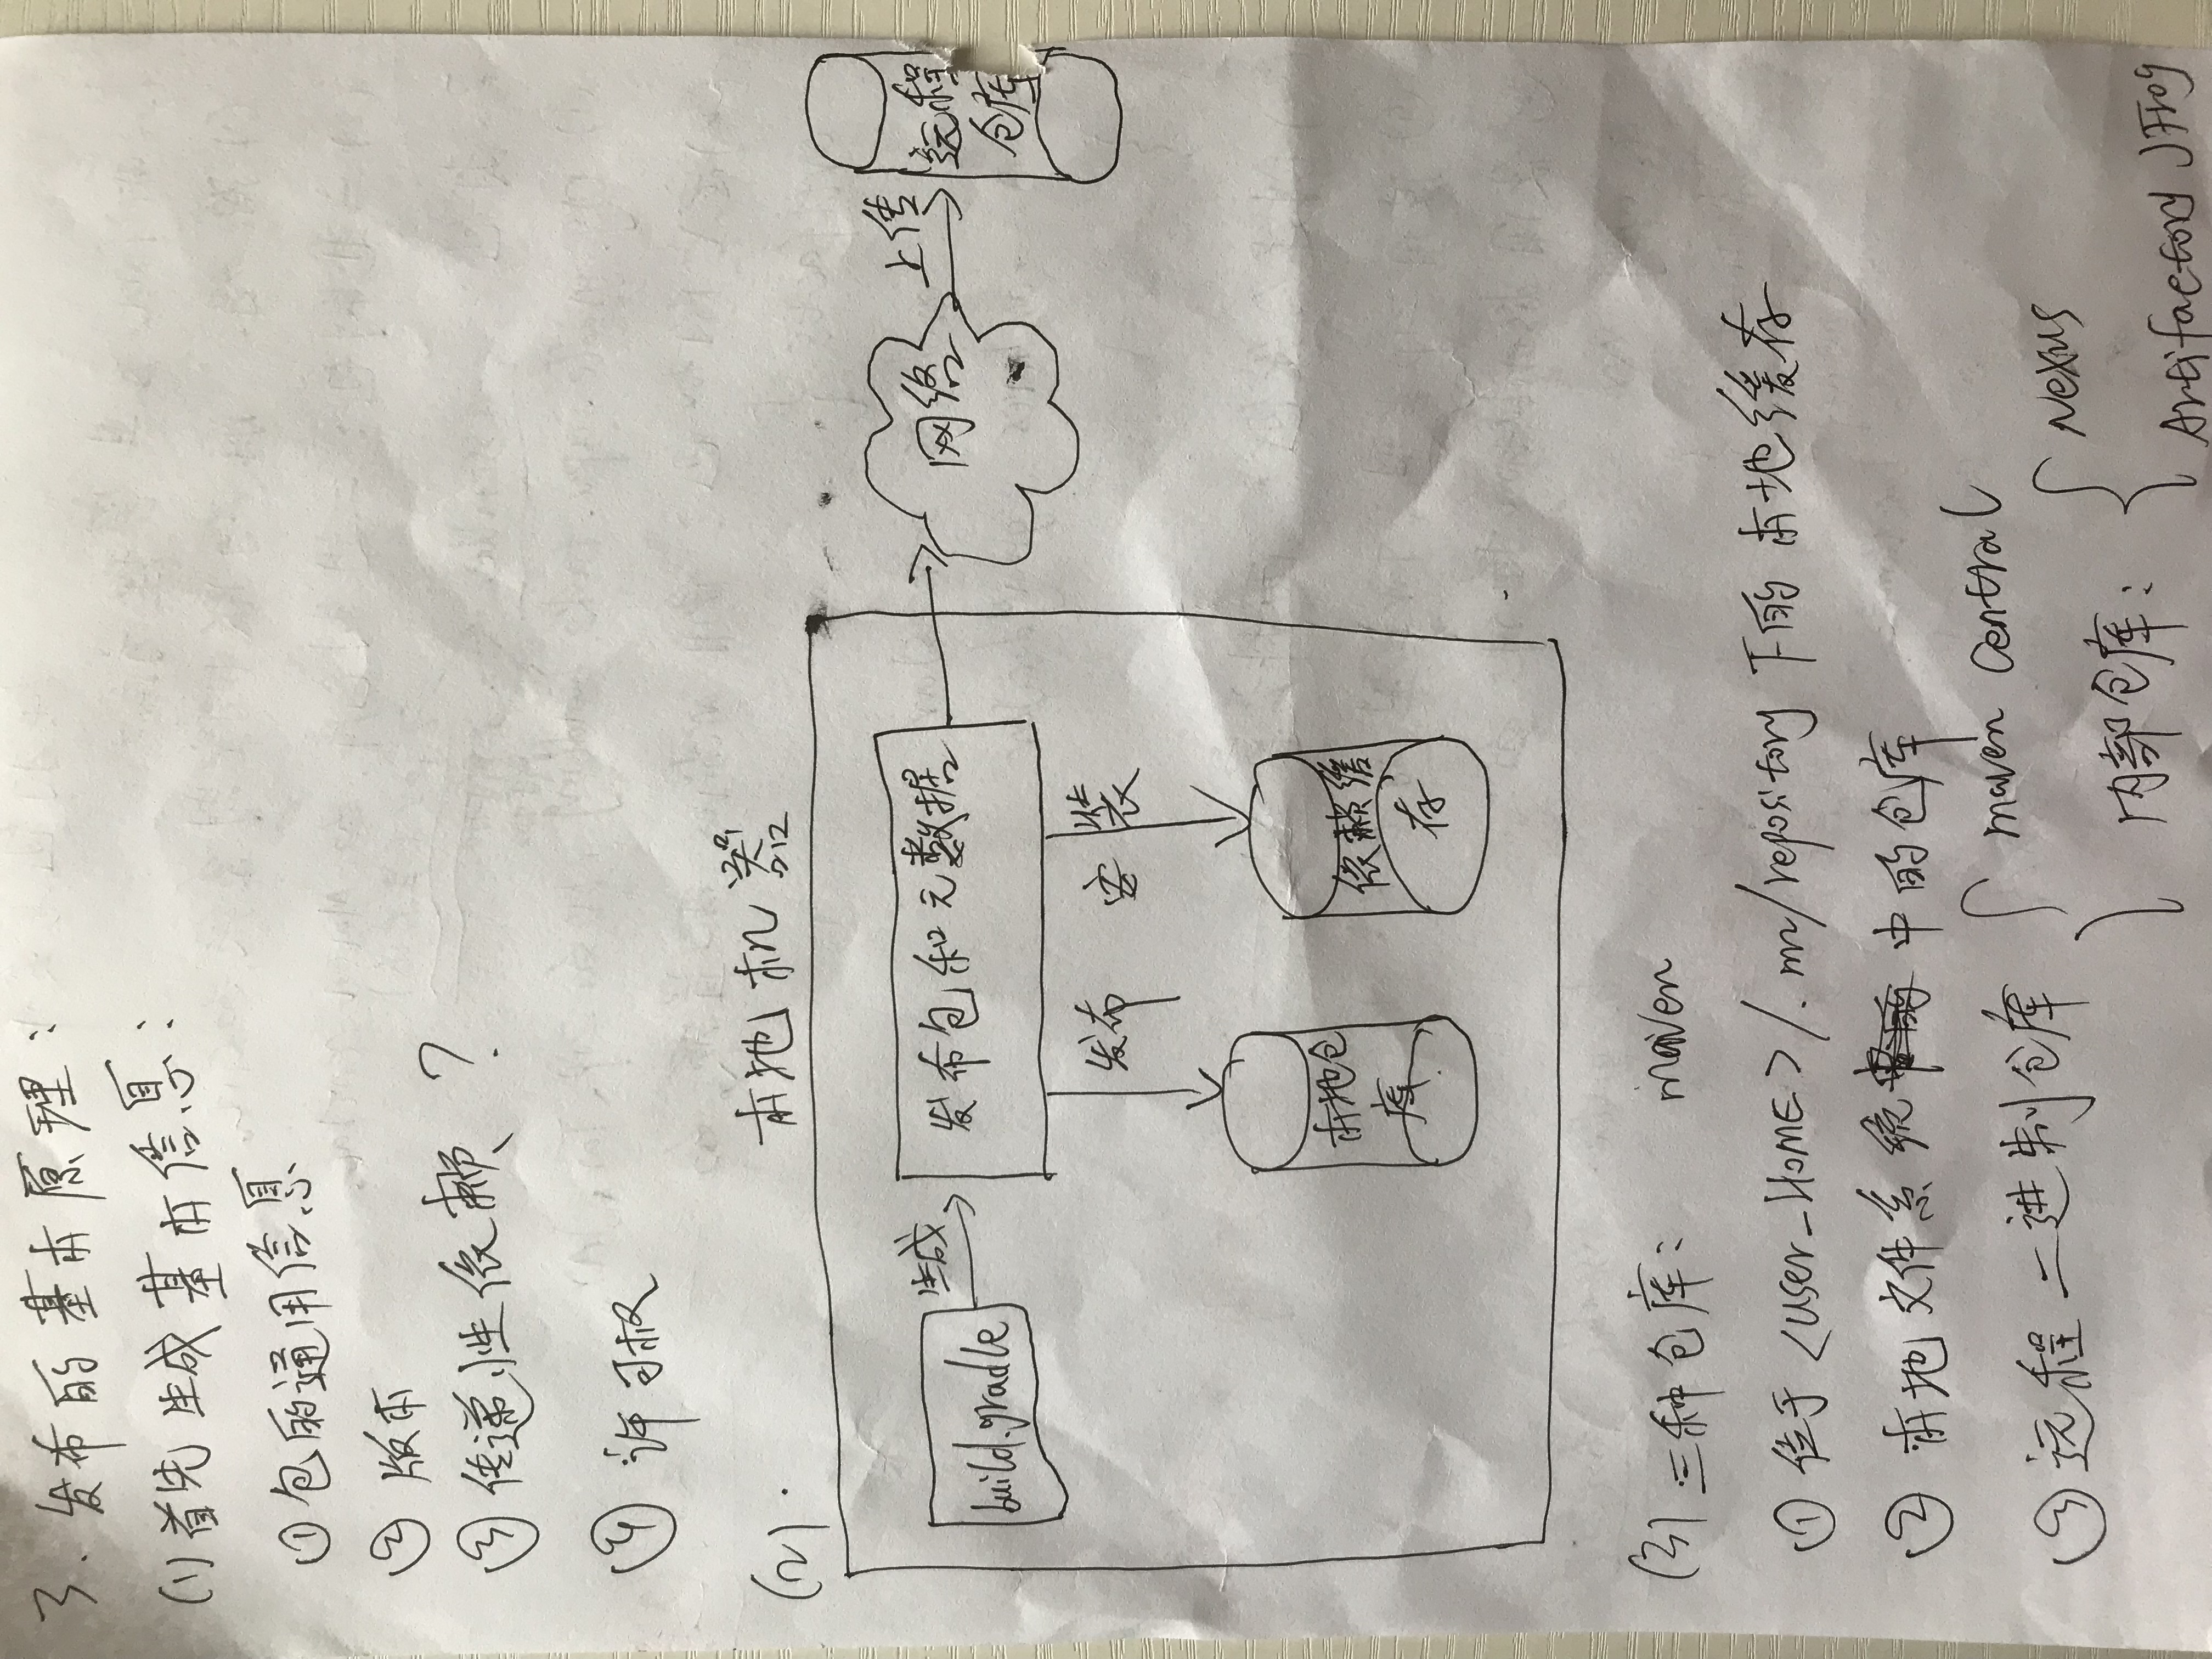 3. 发布的基本原理：
(1) 首先生成基本信息：
① 包的通用信息
② 版本
③ 传递性依赖？
④ 许可权
(2).
本地机器
build.gradle
生成
发布包和元数据
网络
上传
远程
仓库
发布
安装
本地仓
库
依赖缓
存
(3) 三种仓库： maven
① 位于 <user_HOME>/.m2/repository 下的本地缓存
② 本地文件系统中的仓库
③ 远程二进制仓库
maven central
内部仓库：
Nexus
Artifactory JFrog